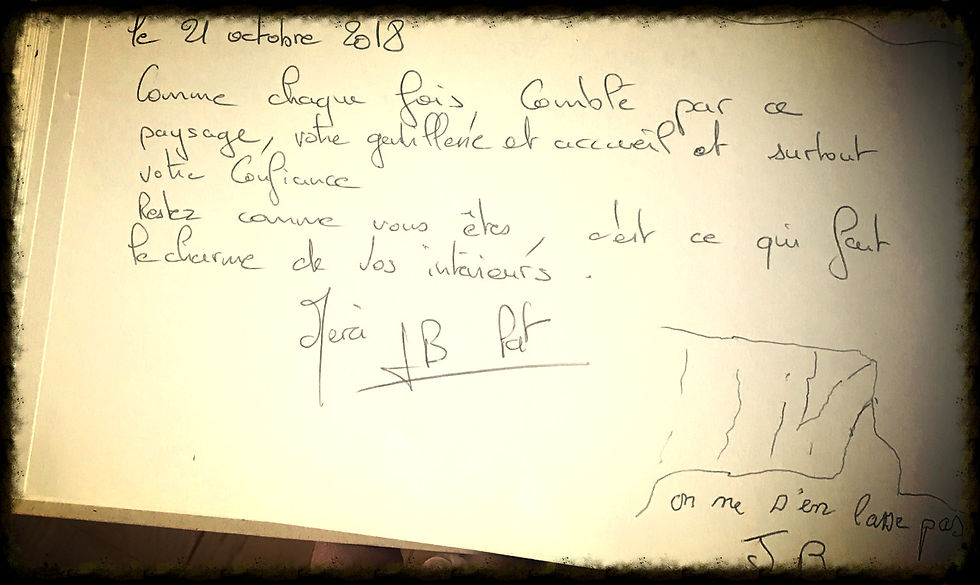 le 21 octobre 2018
Comme chaque fois, Comblé par ce
paysage, votre gentillerie et accueil et surtout
votre Confiance
Restez comme vous êtes, c'est ce qui fait
le charme de vos intérieurs.
Merci JB Pat
on ne s'en lasse pas
JB